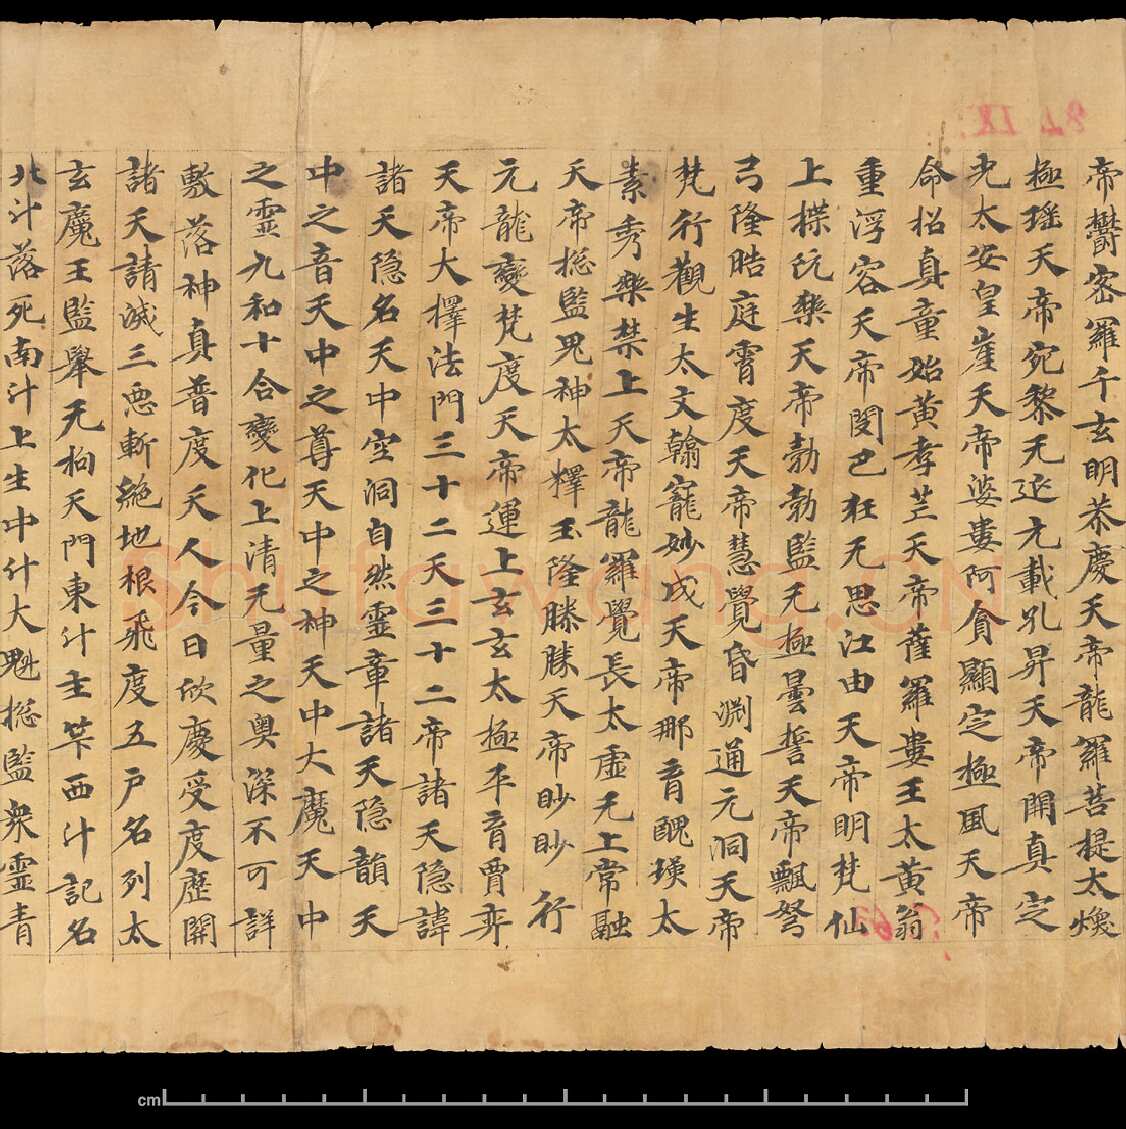 帝欝密羅千玄明恭慶天帝龍羅菩提太煥
極瑶天帝宛黎无延元載孔昇天帝開真定
光太安皇崖天帝婆婁阿貪顯定極風天帝
命招真童始黃孝芒天帝薩羅婁王太黃翁
重浮容天帝閔巴狂无思江由天帝明梵仙
上揲阮樂天帝勃勃監无極曇誓天帝飄弩
弓隆晧庭霄度天帝慧覺昏淵通元洞天帝
梵行觀生太文翰寵妙成天帝那育醜瑛太
素秀樂禁上天帝龍羅覺長太虛无上常融
天帝惣監鬼神太釋玉隆滕勝天帝眇眇行
元龍變梵度天帝運上玄玄太極平育賈弈
天帝大擇法門三十二天三十二帝諸天隱諱
諸天隱名天中空洞自然靈章諸天隱韻天
中之音天中之尊天中之神天中大魔天中
之靈九和十合變化上清无量之奧深不可詳
敷落神真普度天人今日欣慶受度歷開
諸天請滅三惡斬絕地根飛度五戶名列太
玄魔王監舉无拘天門東斗主筭西斗記名
北斗落死南斗上生中斗大魁惣監衆靈青
Shufawang.CN
cm